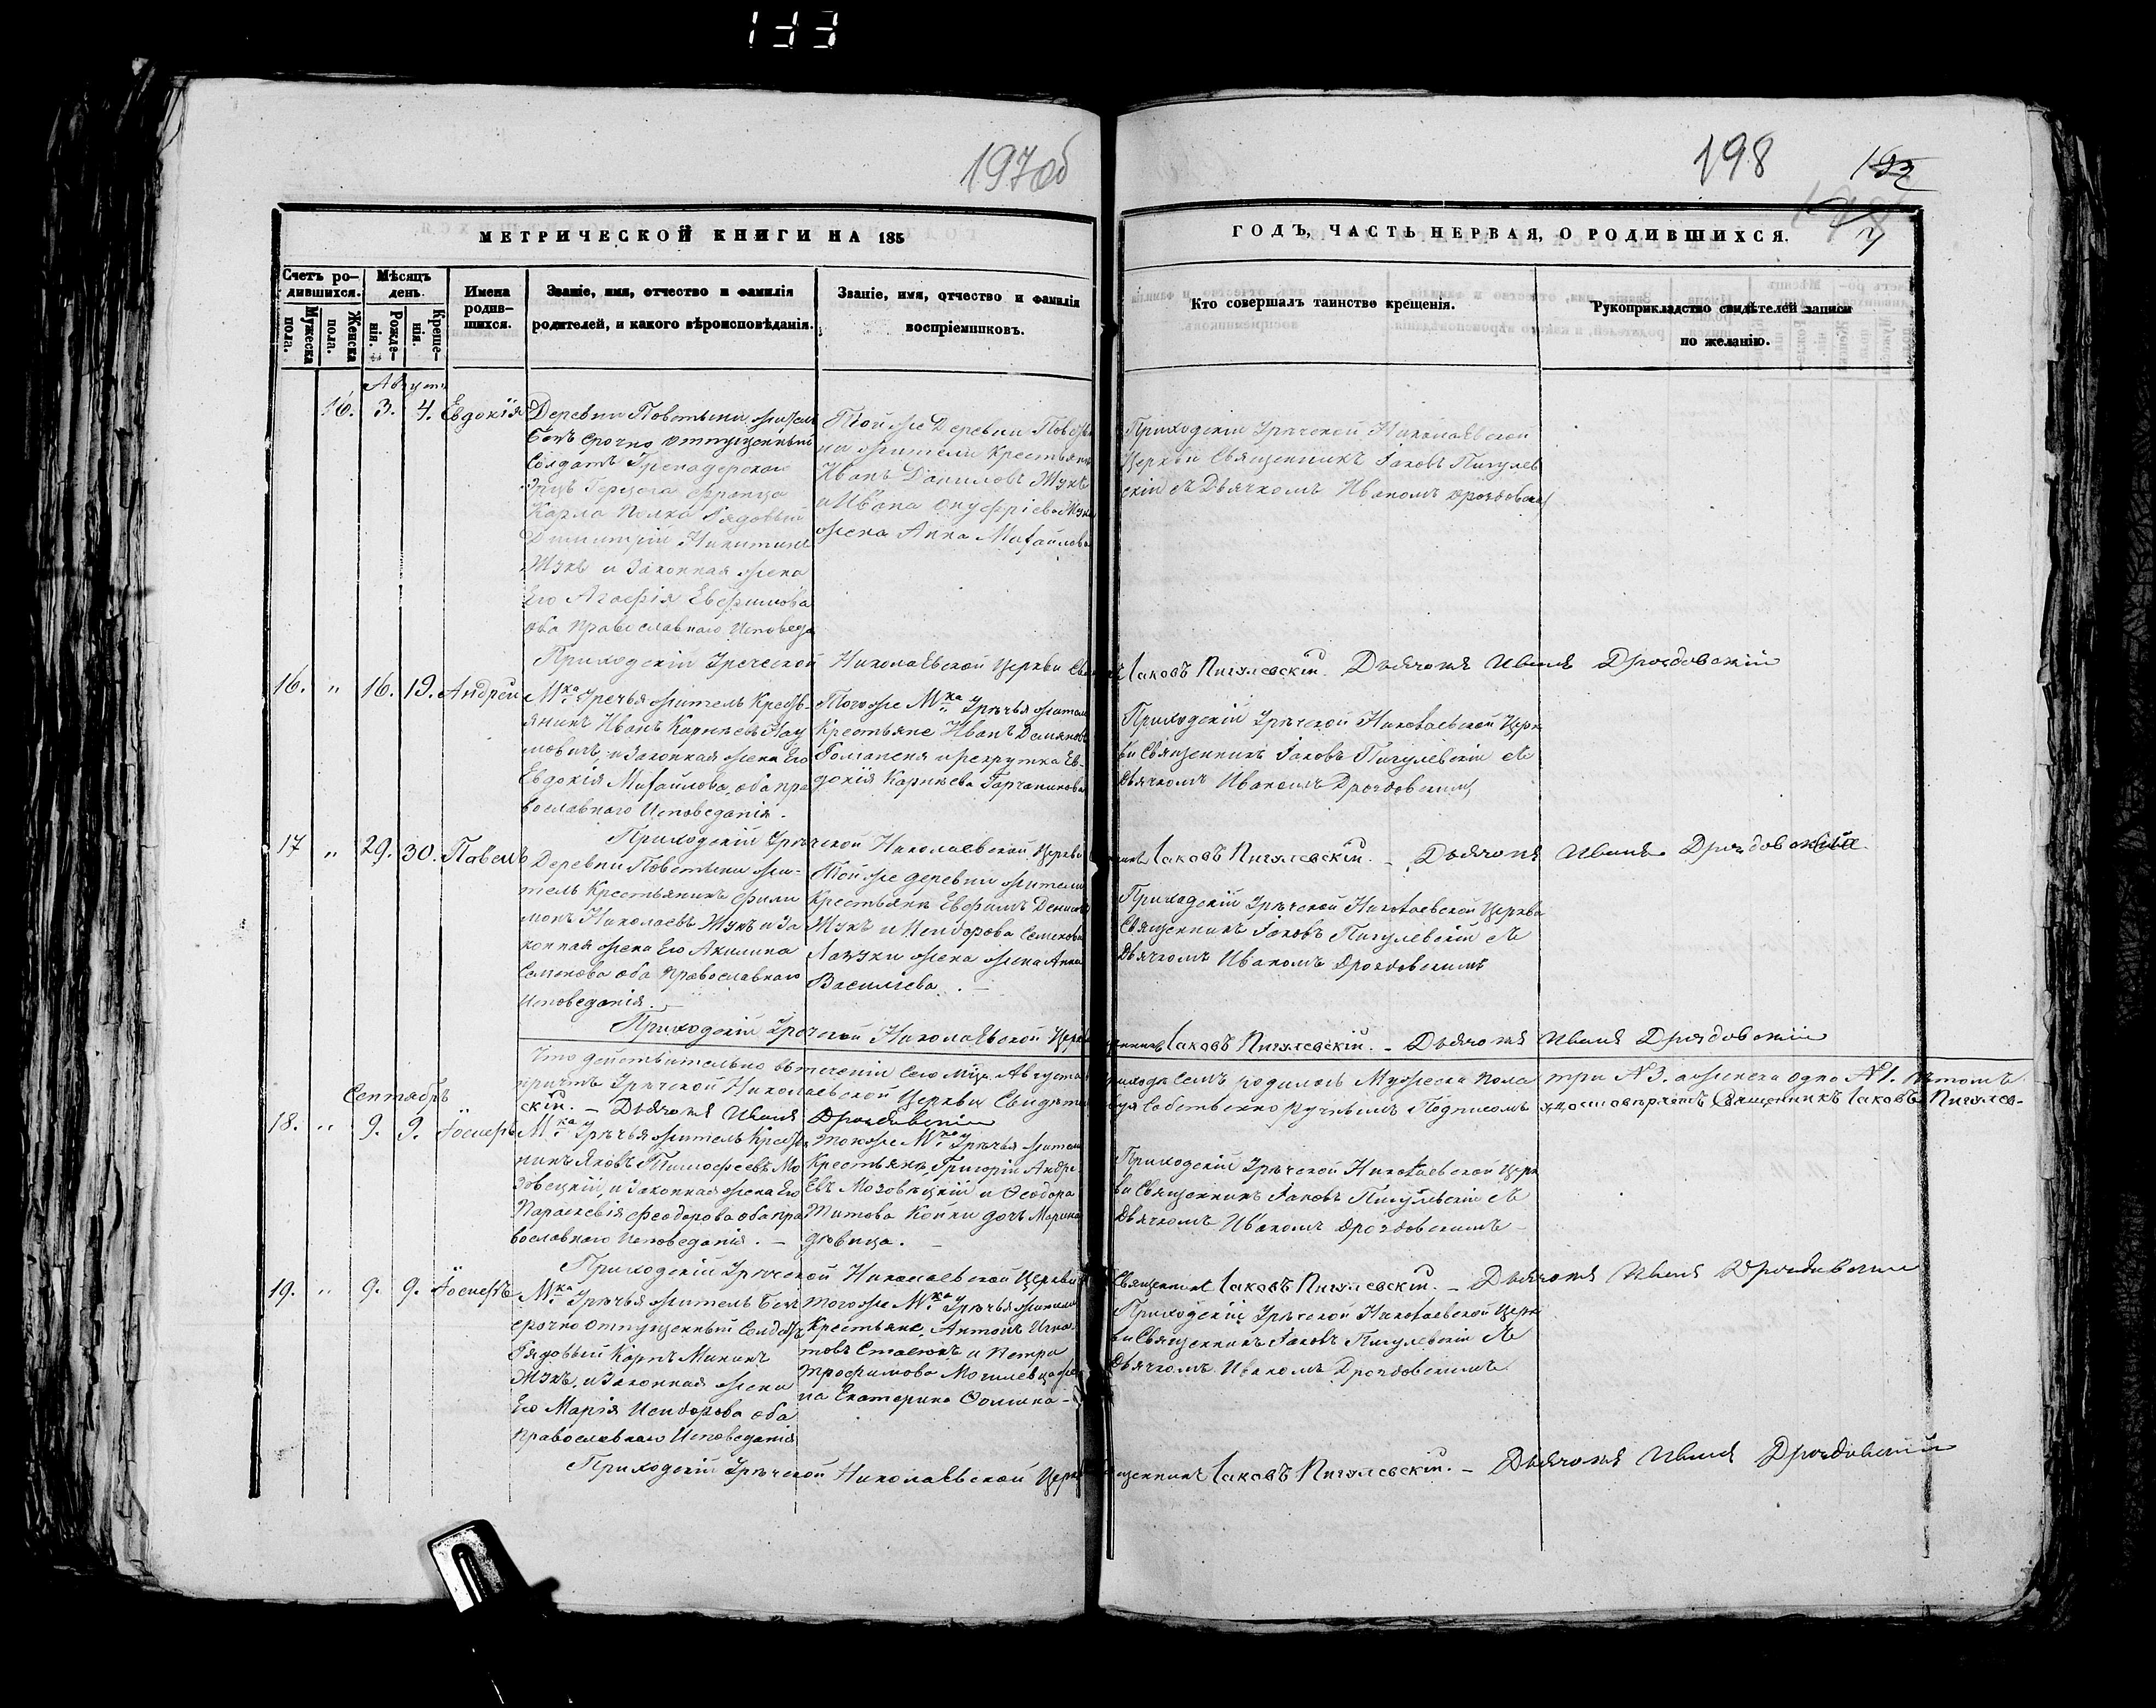 133
197об
198
МЕТРИЧЕСКОЙ КНИГИ НА 185
Счетъ ро-
дившихся.
Мужеска
пола.
Женска
пола.
Мѣсяцъ
день.
Рожде-
нія.
Креще-
нія.
Имена
родив-
шихся.
Званіе, имя, отчество и фамилія
родителей, и какого вѣроисповѣданія.
Званіе, имя, отчество и фамилія
воспріемниковъ.
ГОДЪ, ЧАСТЬ ПЕРВАЯ, О РОДИВШИХСЯ.
Кто совершалъ таинство крещенія.
Рукоприкладство свидѣтелей записи
по желанію.
Августъ
16. 3. 4. Евдокія
Деревни
срочно отпущенный
Солдатъ Гренадерскаго
Эрцъ Герцога Франца
Карла Полка Рядовый
Димитрій Никитинъ
Жукъ и Законная жена
Его Агафія Евфимова
оба Православнаго Исповеда
Той же Деревни
жители Крестьяне
Иванъ Даниловъ Жукъ
и Ивана Онуфріева Жука
жена Анна Михайлова
Приходскій Грѣчской Николаевской
Церкви Священникъ Іаковъ Пигулев
скій съ Дьячкомъ Иваномъ Дроздовским
Приходскій Греческой Николаевской Церкви Іаковъ Пигулевскій. Дьячокъ Иванъ Дроздовскій
16. " 16. 19. Андрей
Мка Грѣчья житель Кресть-
янинъ Иванъ Корнѣевъ
и Законная жена Его
Евдокія Михайлова, оба пра
вославнаго Исповеданія.
Того же Мка Грѣчья жители
Крестьяне Иванъ Демяновъ
и рекрутка Ев-
докія Корнѣева
Приходскій Грѣчской Николаевской Церк
ви Священникъ Іаковъ Пигулевскій съ
Дьячкомъ Иваномъ Дроздовским
Приходскій Грѣчской Николаевской Церкви Іаковъ Пигулевскій. – Дьячокъ Иванъ Дроздовскій
17 " 29. 30. Павелъ
Деревни жи-
тель Крестьянинъ Фили
монъ Николаевъ Жукъ и За
конная жена Его Акилина
Семенова оба Православнаго
Исповеданія. –
Той же деревни жители
Крестьяне Евфимъ Денисовъ
Жукъ и Исидорова Семенова
жена жена Анна
Василіева. –
Приходскій Грѣчской Николаевской Церкви
Священникъ Іаковъ Пигулевскій съ
Дьячкомъ Иваномъ Дроздовскимъ
Приходскій Гречской Николаевской Церк Іаковъ Пигулевскій. – Дьячокъ Иванъ Дроздовскій
Что действительно въ теченіи Сего Мца Августа Приходѣ Семъ родилось Мужеска Пола три №3. а женска одно №1. въ томъ
причтъ Грѣчской Николаевской Церкви Собственно ручнымъ Подписомъ Священникъ Іаковъ Пигулев-
скій. – Дьячокъ Иванъ Дроздовскій
Сентябрь
18. " 9. 9. Іосифъ
Мка Грѣчья житель Кресть
нинъ Яковъ Тимофеевъ Мо
зовецкій, и Законная жена Его
Параскевія Феодорова оба пра
вославнаго Исповеданія. –
Того же Мка Грѣчья жители
Крестьяне Григорій Андре
евъ Мозовецкій и Феодора
Титова Койки дочь Марина
дѣвица. –
Приходскій Грѣчской Николаевской Церк
ви Священникъ Іаковъ Пигулевскій съ
Дьячкомъ Иваномъ Дроздовскимъ
Приходскій Грѣческой Николаевской Церкви Священникъ Іаковъ Пигулевскій. – Дьячокъ Иванъ Дроздовскій
19. " 9. 9. Іосифъ
Мка Грѣчья житель Без
срочно отпущенный Солдатъ
Рядовый Карпъ Мининъ
Жукъ, и Законная жена
Его Марія Исидорова оба
Православнаго Исповеданія
Того же Мка Грѣчья жители
Крестьяне, Антонъ Игна
товъ и Петра
Трофимова же
на Екатерина Фомина –
Приходскій Грѣчской Николаевской Церк
ви Священникъ Іаковъ Пигулевскій съ
Дьячкомъ Иваномъ Дроздовскимъ
Приходскій Грѣчской Николаевской Церкв Священникъ Іаковъ Пигулевскій. – Дьячокъ Иванъ Дроздовскій